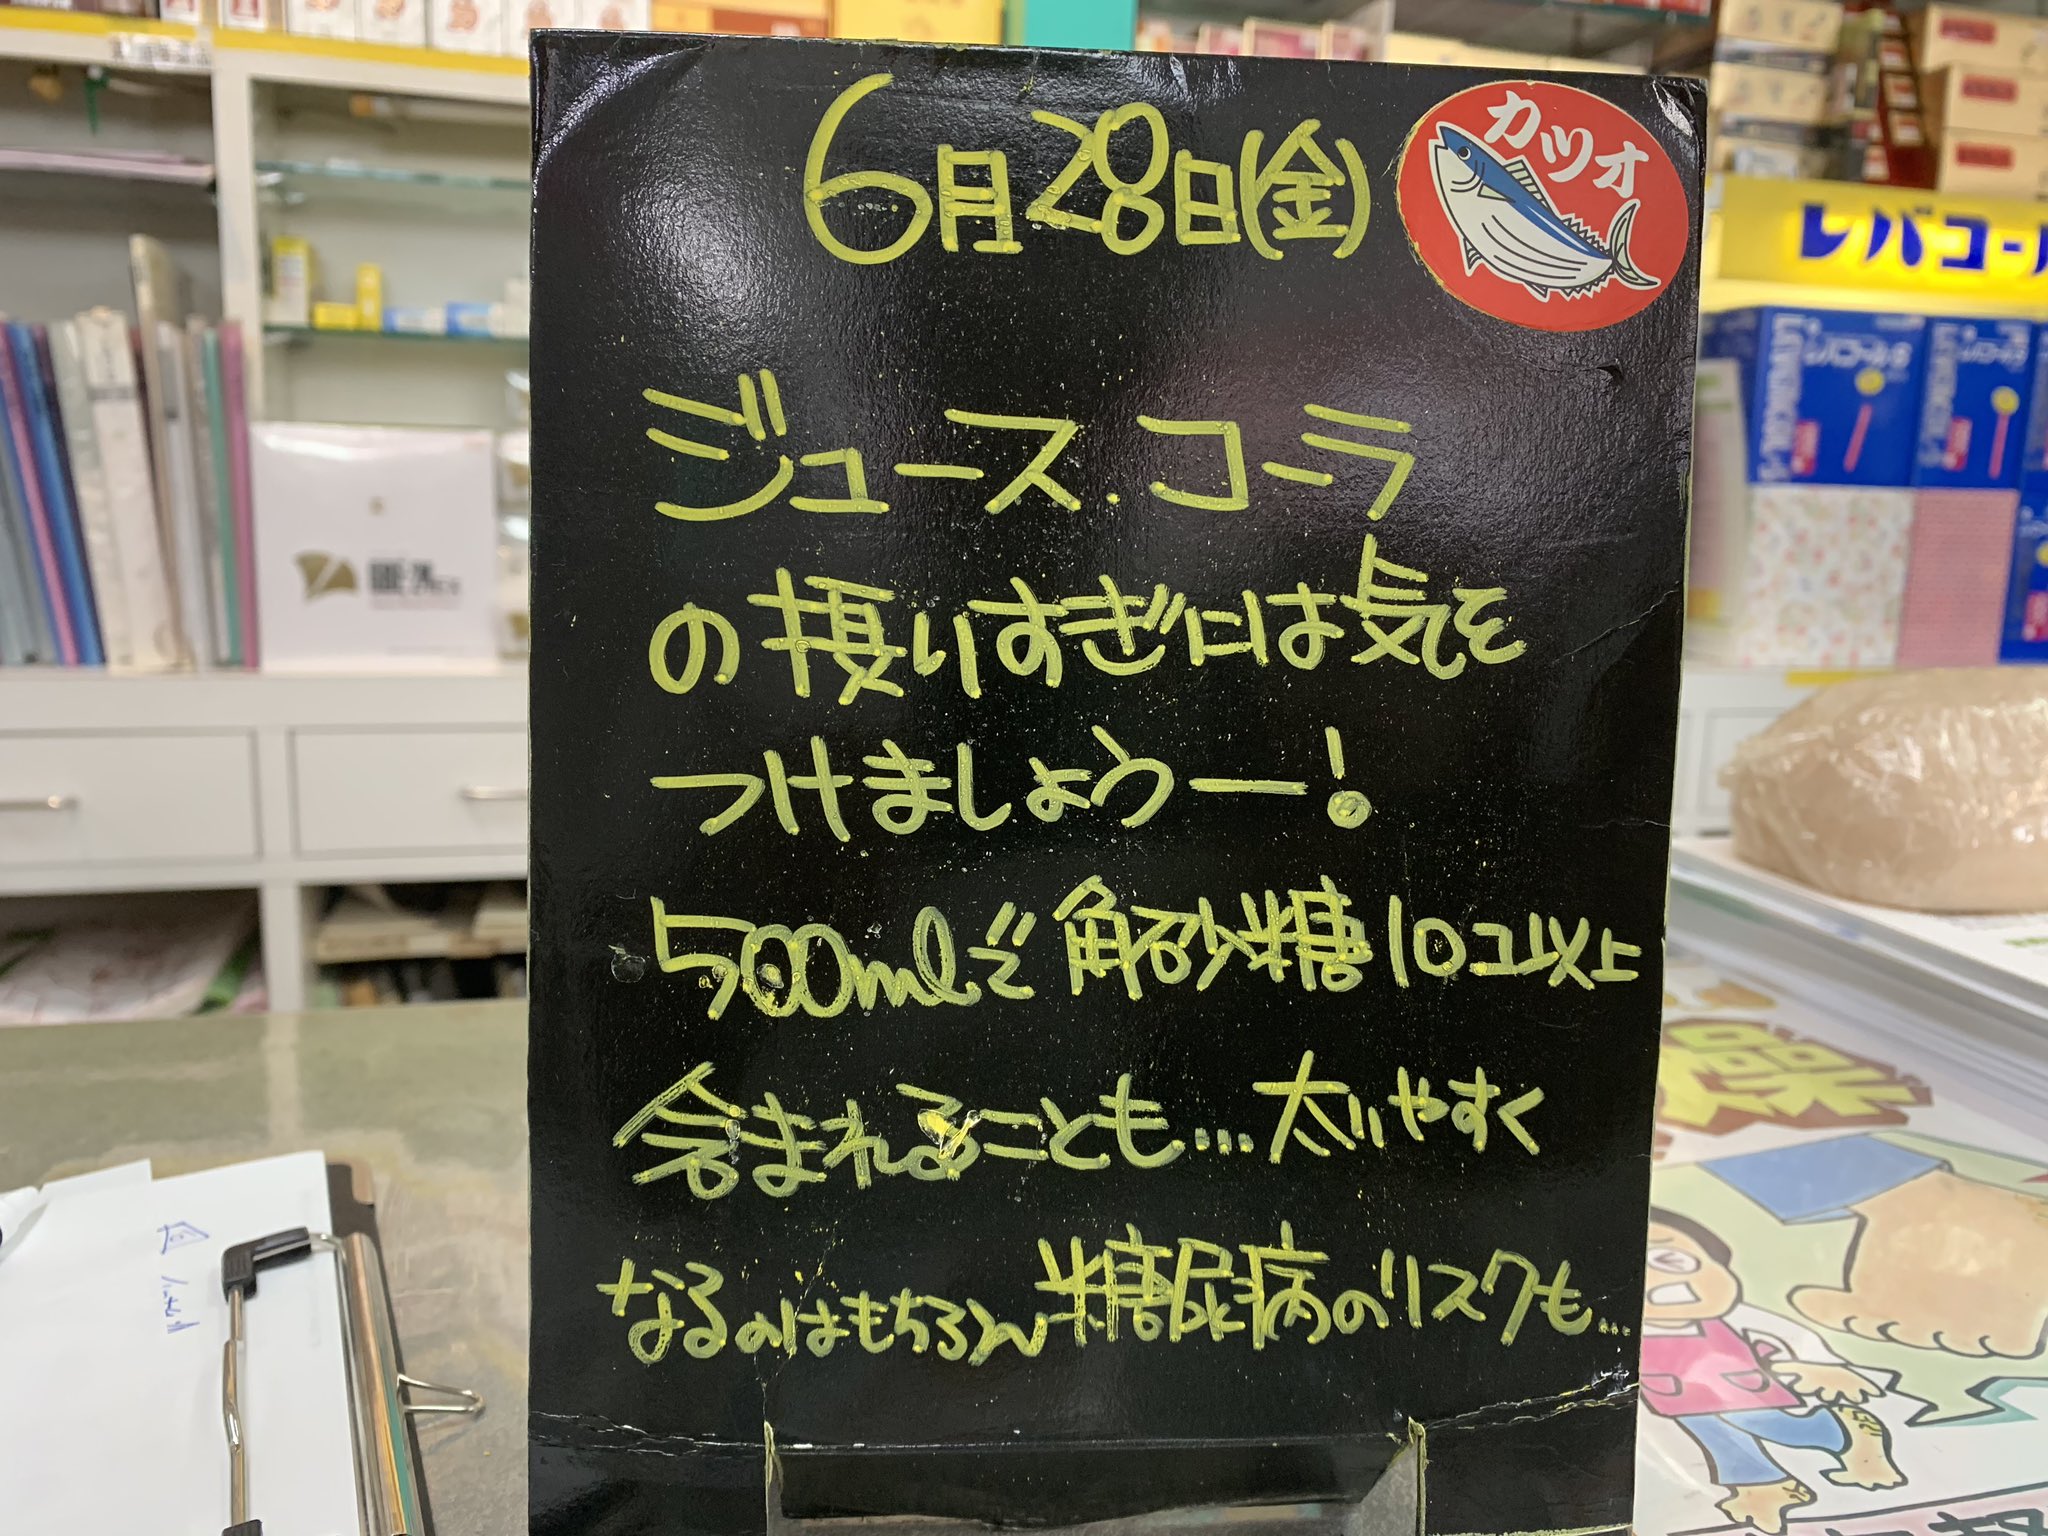 6月28日(金)
カツオ
ジュース.コーラ
の摂りすぎには気を
つけましょうー!
500mlで角砂糖10コ以上
含まれることも...太りやすく
なるのはもちろん糖尿病のリスクも...
レバコール